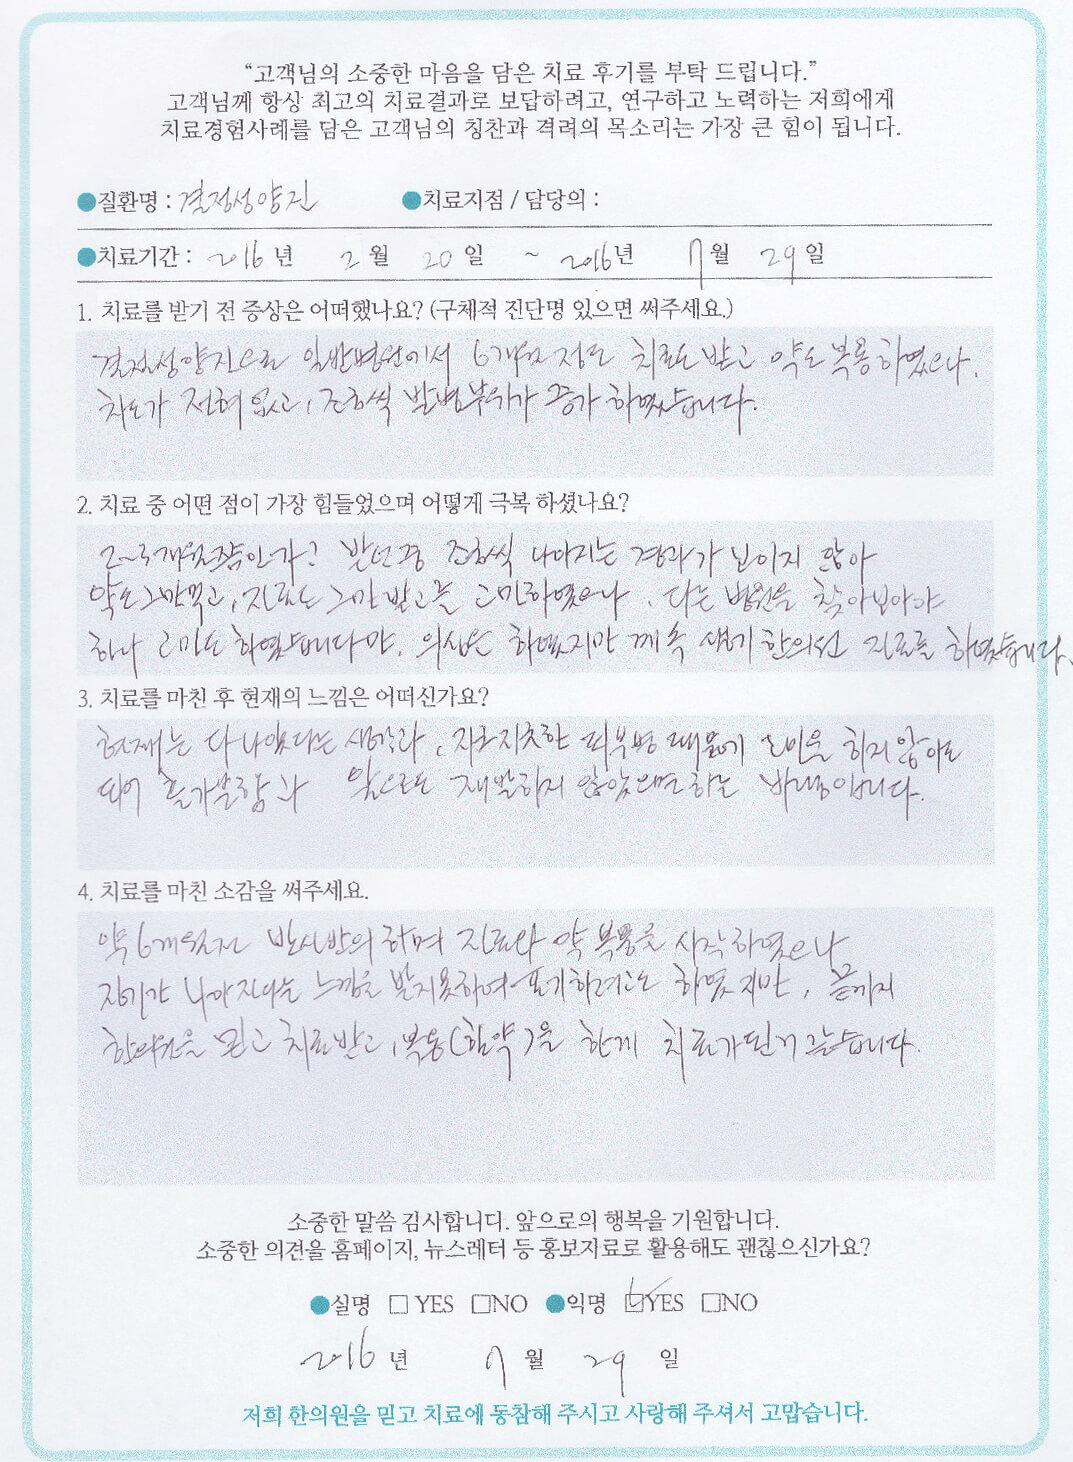 “고객님의 소중한 마음을 담은 치료 후기를 부탁 드립니다.”
고객님께 항상 최고의 치료결과로 보답하려고, 연구하고 노력하는 저희에게
치료경험사례를 담은 고객님의 칭찬과 격려의 목소리는 가장 큰 힘이 됩니다.
●질환명 : 결절성양진 ●치료지점 / 담당의 :
●치료기간 : 2016 년 2 월 20 일 ~ 2016년 7월 29일
1. 치료를 받기 전 증상은 어떠했나요? (구체적 진단명 있으면 써주세요.)
결절성양진으로 일반병원에서 6개월 정도 치료도 받고 약도 복용하였으나,
차도가 전혀 없고, 조금씩 발병부위가 증가 하였습니다.
2. 치료 중 어떤 점이 가장 힘들었으며 어떻게 극복 하셨나요?
2~3개월쯤인가? 조금씩 나아지는 경과가 보이지 않아
약도 그만먹고, 진료도 그만 받고를 고민하였으나, 다른 병원을 찾아보아야
하나 고민도 하였습니다만, 의심은 하였지만 계속 한의원 진료를 하였습니다.
3. 치료를 마친 후 현재의 느낌은 어떠신가요?
현재는 다 나았다는 생각과, 피부병 때문에 고민을 하지 않아도
되어 홀가분함과 앞으로도 재발하지 않았으면 하는 바램입니다.
4. 치료를 마친 소감을 써주세요.
약 6개월전 반신반의 하며 진료와 약 복용을 시작하였으나
나아진다는 느낌을 받지못하여 포기하려고도 하였지만, 끝까지
한의원을 믿고 치료받고, 복용(한약)을 한게 치료가된거 같습니다.
소중한 말씀 감사합니다. 앞으로의 행복을 기원합니다.
소중한 의견을 홈페이지, 뉴스레터 등 홍보자료로 활용해도 괜찮으신가요?
●실명 □ YES □NO ●익명 ☑YES □NO
2016 년 7 월 29 일
저희 한의원을 믿고 치료에 동참해 주시고 사랑해 주셔서 고맙습니다.